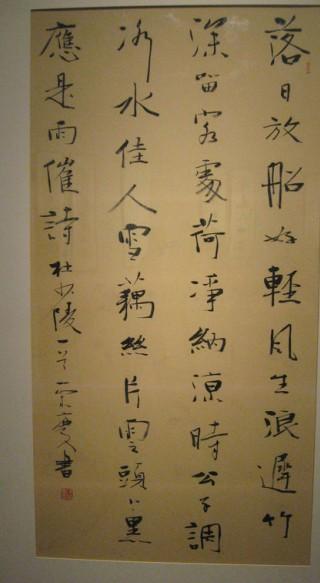 落日放船好輕風生浪遲竹
深留客處荷淨納涼時公子調
冰水佳人雪藕絲片雲頭上黑
應是雨催詩杜少陵一首書